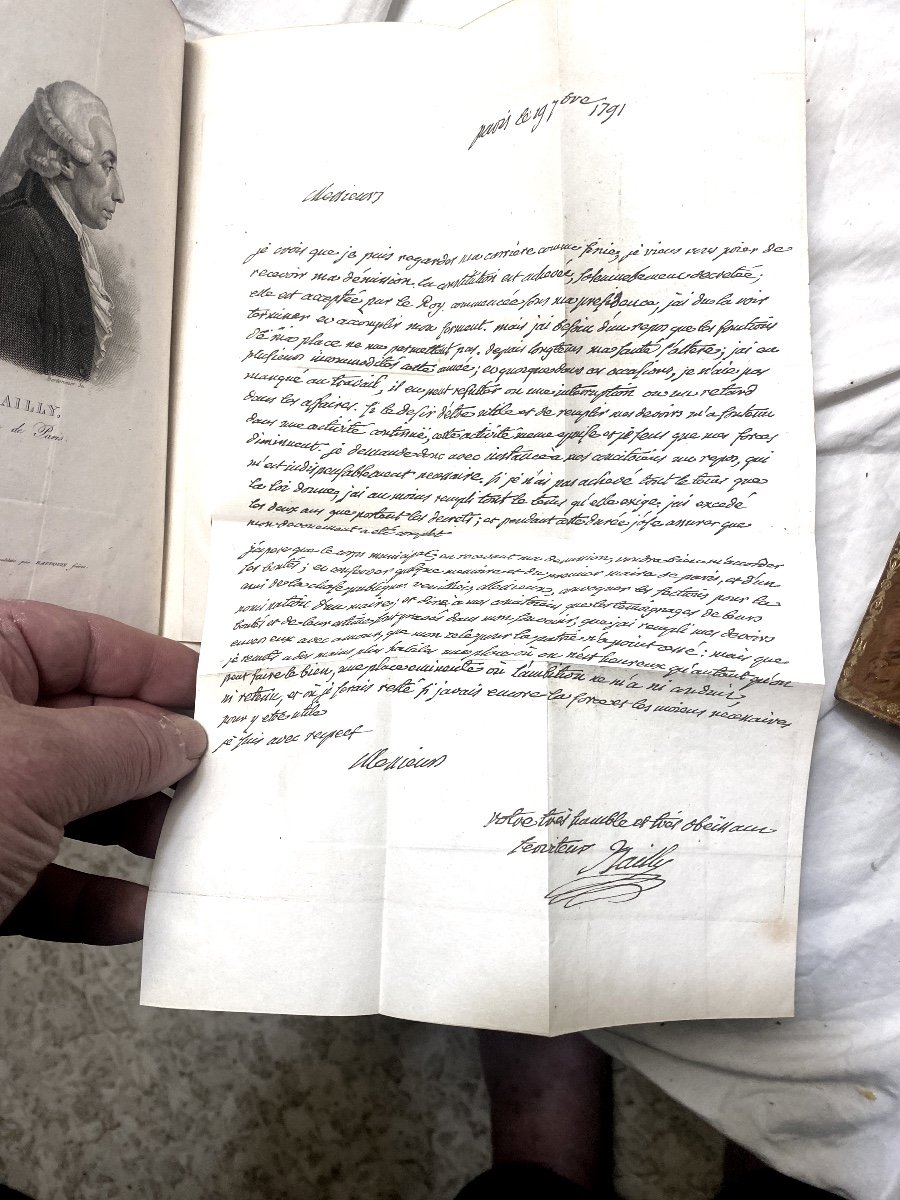 AILLY,
de Paris.
paris le 19 7bre 1791
Messieurs
je crois que je puis regarder ma carrière comme finie, je viens vous prier de
recevoir ma démission. la constitution est achevée, solennellement decretée;
elle est acceptée par le Roy. commencée sous ma presidence, j'ai du la voir
terminer et accomplir mon serment. mais j'ai besoin d'un repos que les fonctions
de ma place ne me permettent pas. depuis longtems ma santé s'altere; j'ai eu
plusieurs incommodités cette année; et quoique dans ces occasions, je n'aie pas
manqué au travail, il en peut resulter ou une interruption ou un retard
dans les affaires. Si le desir d'être utile et de remplir mes devoirs m'a soutenu
dans une activité continüe, cette activité meme epuise et je sens que mes forces
diminuent. je demande donc avec instance à mes concitoiens un repos, qui
m'est indispensablement necessaire. Si je n'ai pas achevé tout le tems que
la loi donne, j'ai au moins rempli tout le tems qu'elle exige. j'ai excedé
les deux ans que portent les decrets; et pendant cette durée j'ose assurer que
mon devouement a été complet
j'espere que le corps municipal, en recevant ma demission, voudra bien m'accorder
ses bontés; et conserver quelque memoire et du premier maire de paris, et d'un
ami de la chose publique. veuillés, Messieurs, convoquer les sections pour la
nomination d'un maire; et dire à mes concitoiens que les temoignages de leurs
bontés et de leur estime sont gravés dans mon coeur, que j'ai rempli mes devoirs
envers eux avec amour, que mon zele pour la patrie n'a point cessé: mais que
je remets à des mains plus habiles une place où on n'est heureux qu'autant qu'on
peut faire le bien, une place eminente où l'ambition ne m'a ni conduit,
ni retenu, et où je serais resté si j'avais encore la force et les moiens necessaires
pour y etre utile
je suis avec respect
Messieurs
votre très humble et très obeissant
serviteur Bailly